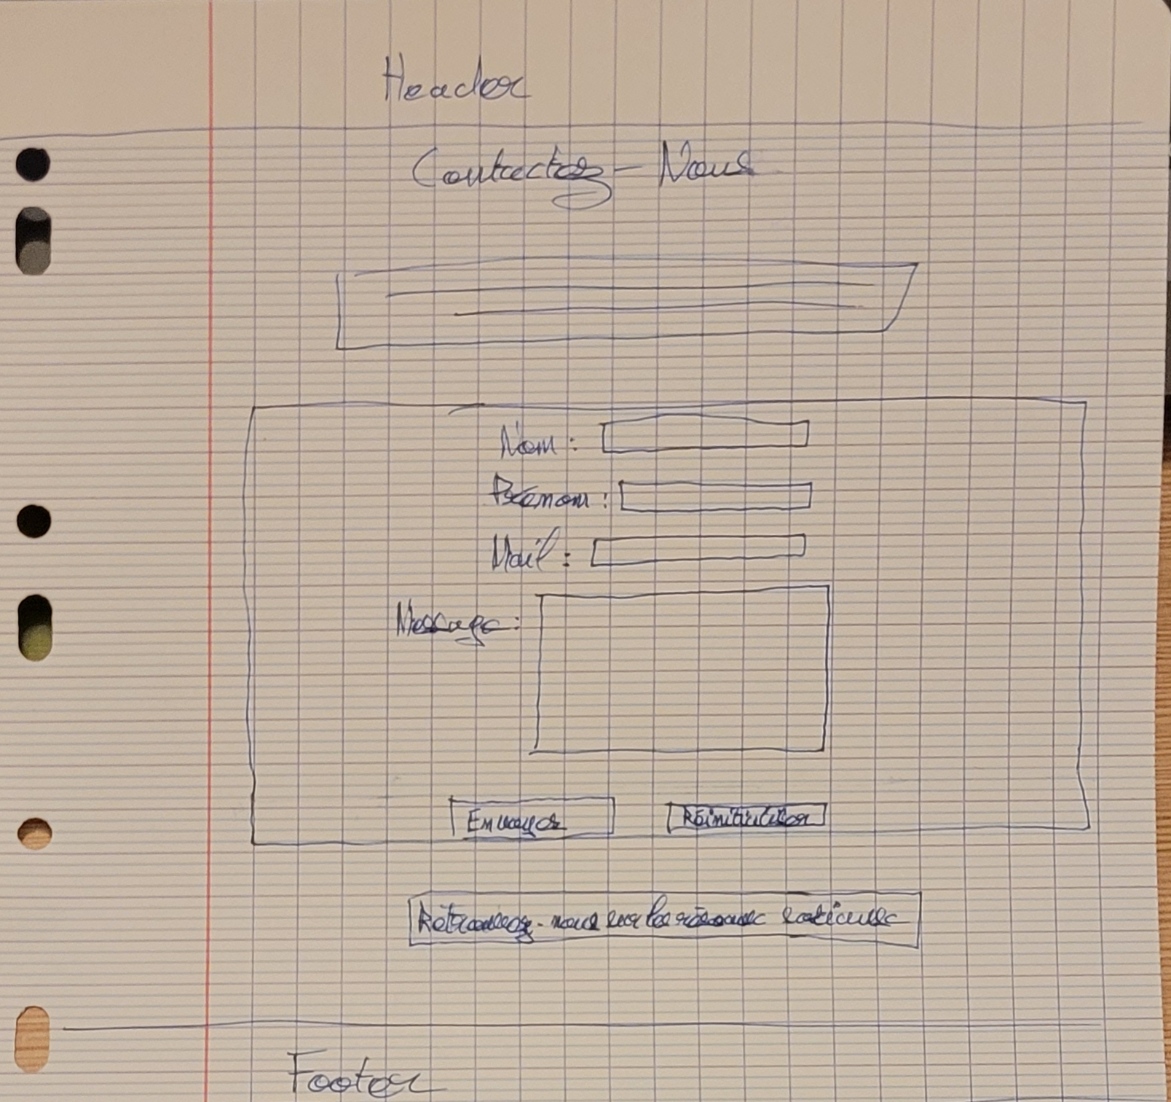 Header
Contactez-Nous
Nom :
Prénom :
Mail :
Message :
Envoyer
Réinitialiser
Retrouvez-nous sur les réseaux sociaux
Footer